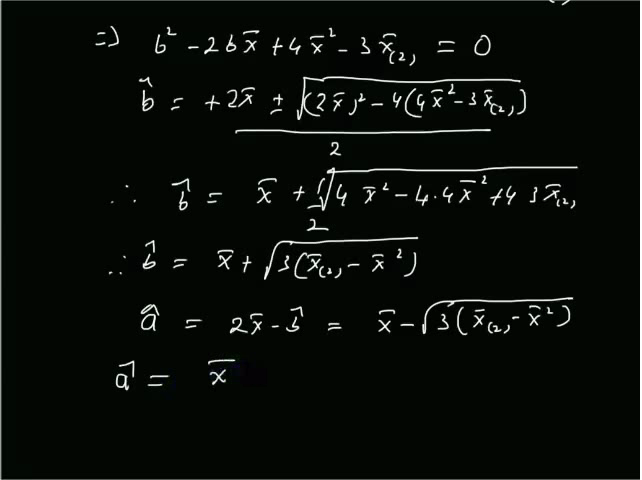 ⇒) b² - 2bx̄ + 4x̄² - 3x̄(2) = 0
b̂ = +2x̄ ± √((2x̄)² - 4(4x̄² - 3x̄(2)) / 2
∴ b̂ = x̄ + 1/2 √(4x̄² - 4·4x̄² + 4 3x̄(2)
∴ b̂ = x̄ + √(3(x̄(2) - x̄²)
â = 2x̄ - b̂ = x̄ - √(3(x̄(2) - x̄²)
â = x̄